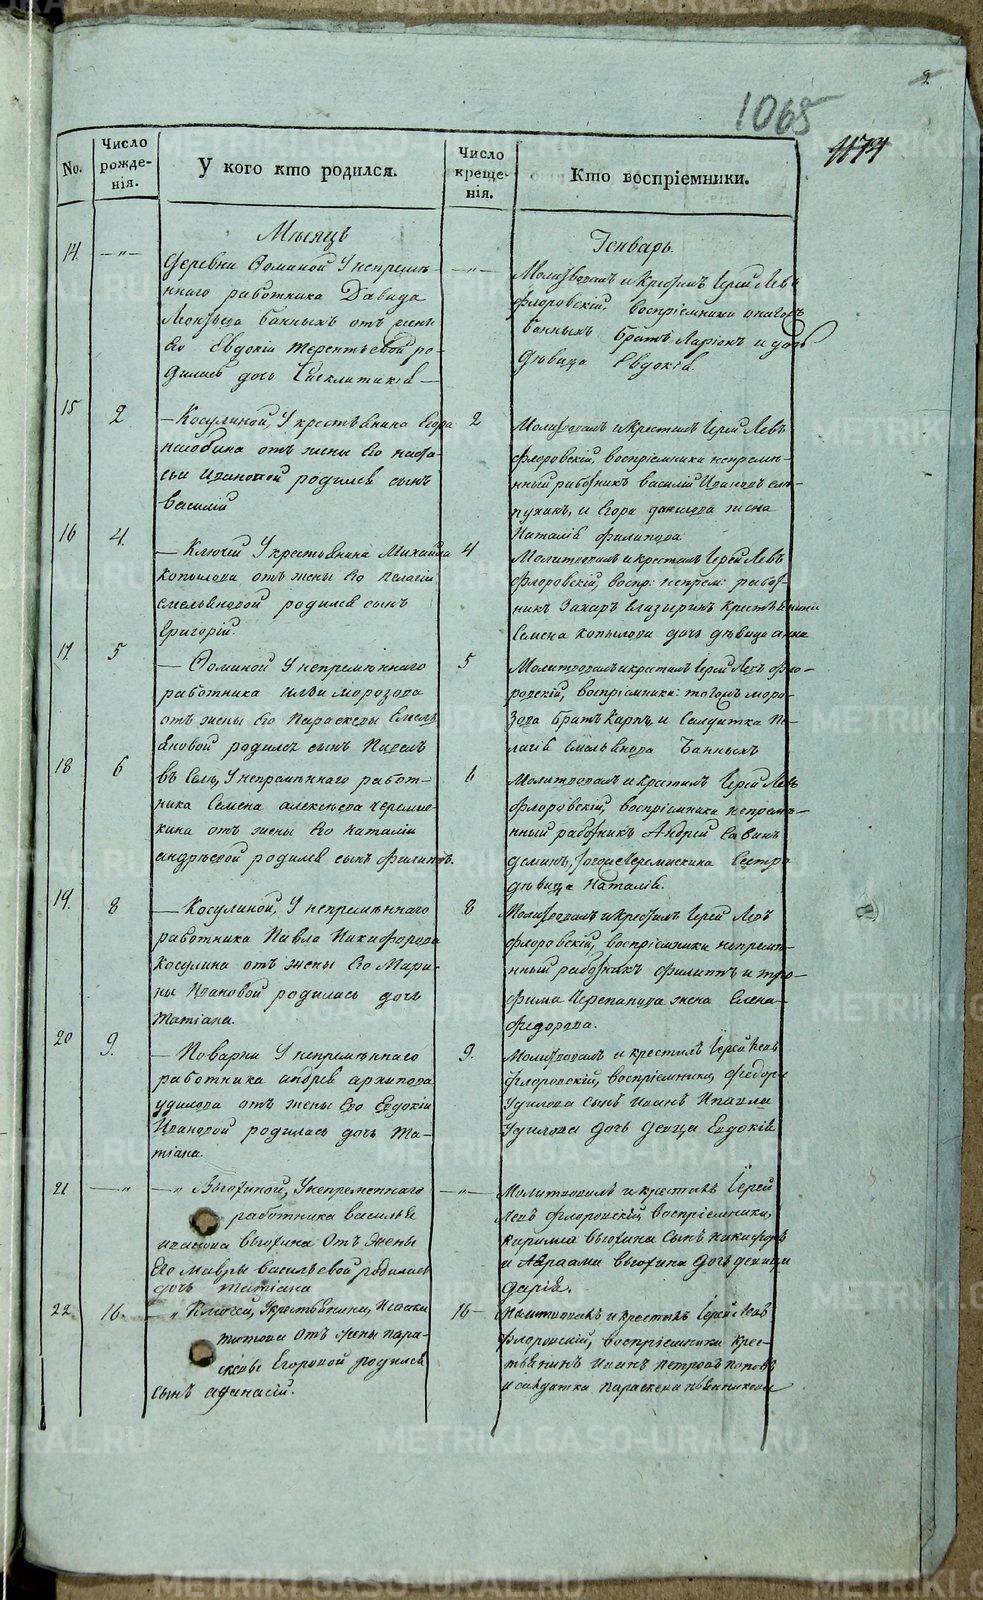 2
1065
1174
No.
Число рожде-
нія.
У кого кто родился.
Число
креще-
нія.
Кто воспріемники.
Мѣсяцъ
Генварь.
14.
— „ —
Деревни Ѳоминой У непремѣ-
ннаго работника Давида
Леонтьева банныхъ отъ жены
Его Евдокіи терентьевой ро-
дилась дочь
— „ —
Молитвовалъ и крестилъ Іерей Левъ
флоровскій, воспріемники онагожъ
банныхъ братъ Ларіонъ и дочь
дѣвица Евдокія.
15
2
— Косулиной, У крестьянина Егора
отъ жены Его
Ивановой родился сынъ
василій
2
Молитвовалъ и крестилъ Іерей Левъ
флоровскій, воспріемники непремѣ-
нный работникъ василій Ивановъ
и Егора данилова жена
Наталія филипова
16
4.
— Ключей У крестьянина Михайла
копылова отъ жены Его пелагіи
емельяновой родился сынъ
Григорій.
4
Молитвовалъ и крестилъ Іерей Левъ
флоровскій, воспр: непрем: работ-
никъ Захаръ глазыринъ крестьянина
Семена копылова дочь дѣвица анна
17.
5
— Ѳоминой У непремѣннаго
работника ильи морозова
отъ жены Его Параскевы Емель
яновой родился сынъ Павелъ
5
Молитвовалъ и крестилъ Іерей Левъ фло-
ровскій, воспріемники: тогожъ моро-
зова братъ Карпъ, и Салдатка Пе-
лагія Емельянова Банныхъ
18
6
въ Селѣ, У непремѣннаго работ-
ника Семена алексѣева черемис-
кина отъ жены Его наталіи
андрѣевой родился сынъ филиппъ.
6
Молитвовалъ и крестилъ Іерей Левъ
флоровскій, воспріемники непремѣ-
нный работникъ Андрей Савинъ
деминъ, тогоже черемискина Сестра
дѣвица Наталія.
19.
8
— Косулиной, У непремѣннаго
работника Павла Никифорова
косулина отъ жены Его Мари-
ны Ивановой родилась дочь
татіана.
8
Молитвовалъ и крестилъ Іерей Левъ
флоровскій, воспріемники непремѣ-
нный работникъ филиппъ и тро-
фима Черепанова жена Елена
федорова.
20
9.
— Поварни У непремѣннаго
работника андрея архипова
удилова отъ жены Его Евдокіи
Ивановой родилась дочь та-
тіана.
9.
Молитвовалъ и крестилъ Іерей Левъ
флоровскій, воспріемники, федора
Удилова сынъ иванъ Ипавла
Удилова дочь девица Евдокія
21
— „
— „ Вьюхиной, У непременнаго
работника василья
иванова вьюхина отъ жены
Его мавры васильевой родилась
дочь татіана
— „ —
Молитвовалъ и крестилъ Іерей
Левъ флоровскій воспріемники,
кирилла вьюхина сынъ никифоръ
и Авраама вьюхина дочь девица
дарія.
22
16.
— „ Ключей, У крестьянина, Исаака
титова отъ жены пара-
скевы Егоровой родился
сынъ афанасій.
16 —
Молитвовалъ и крестилъ Іерей Левъ
флоровскій, воспріемники крес-
тьянинъ иванъ петровъ поповъ
и салдатка параскева пьянникова
METRIKI.GASO-URAL.RU